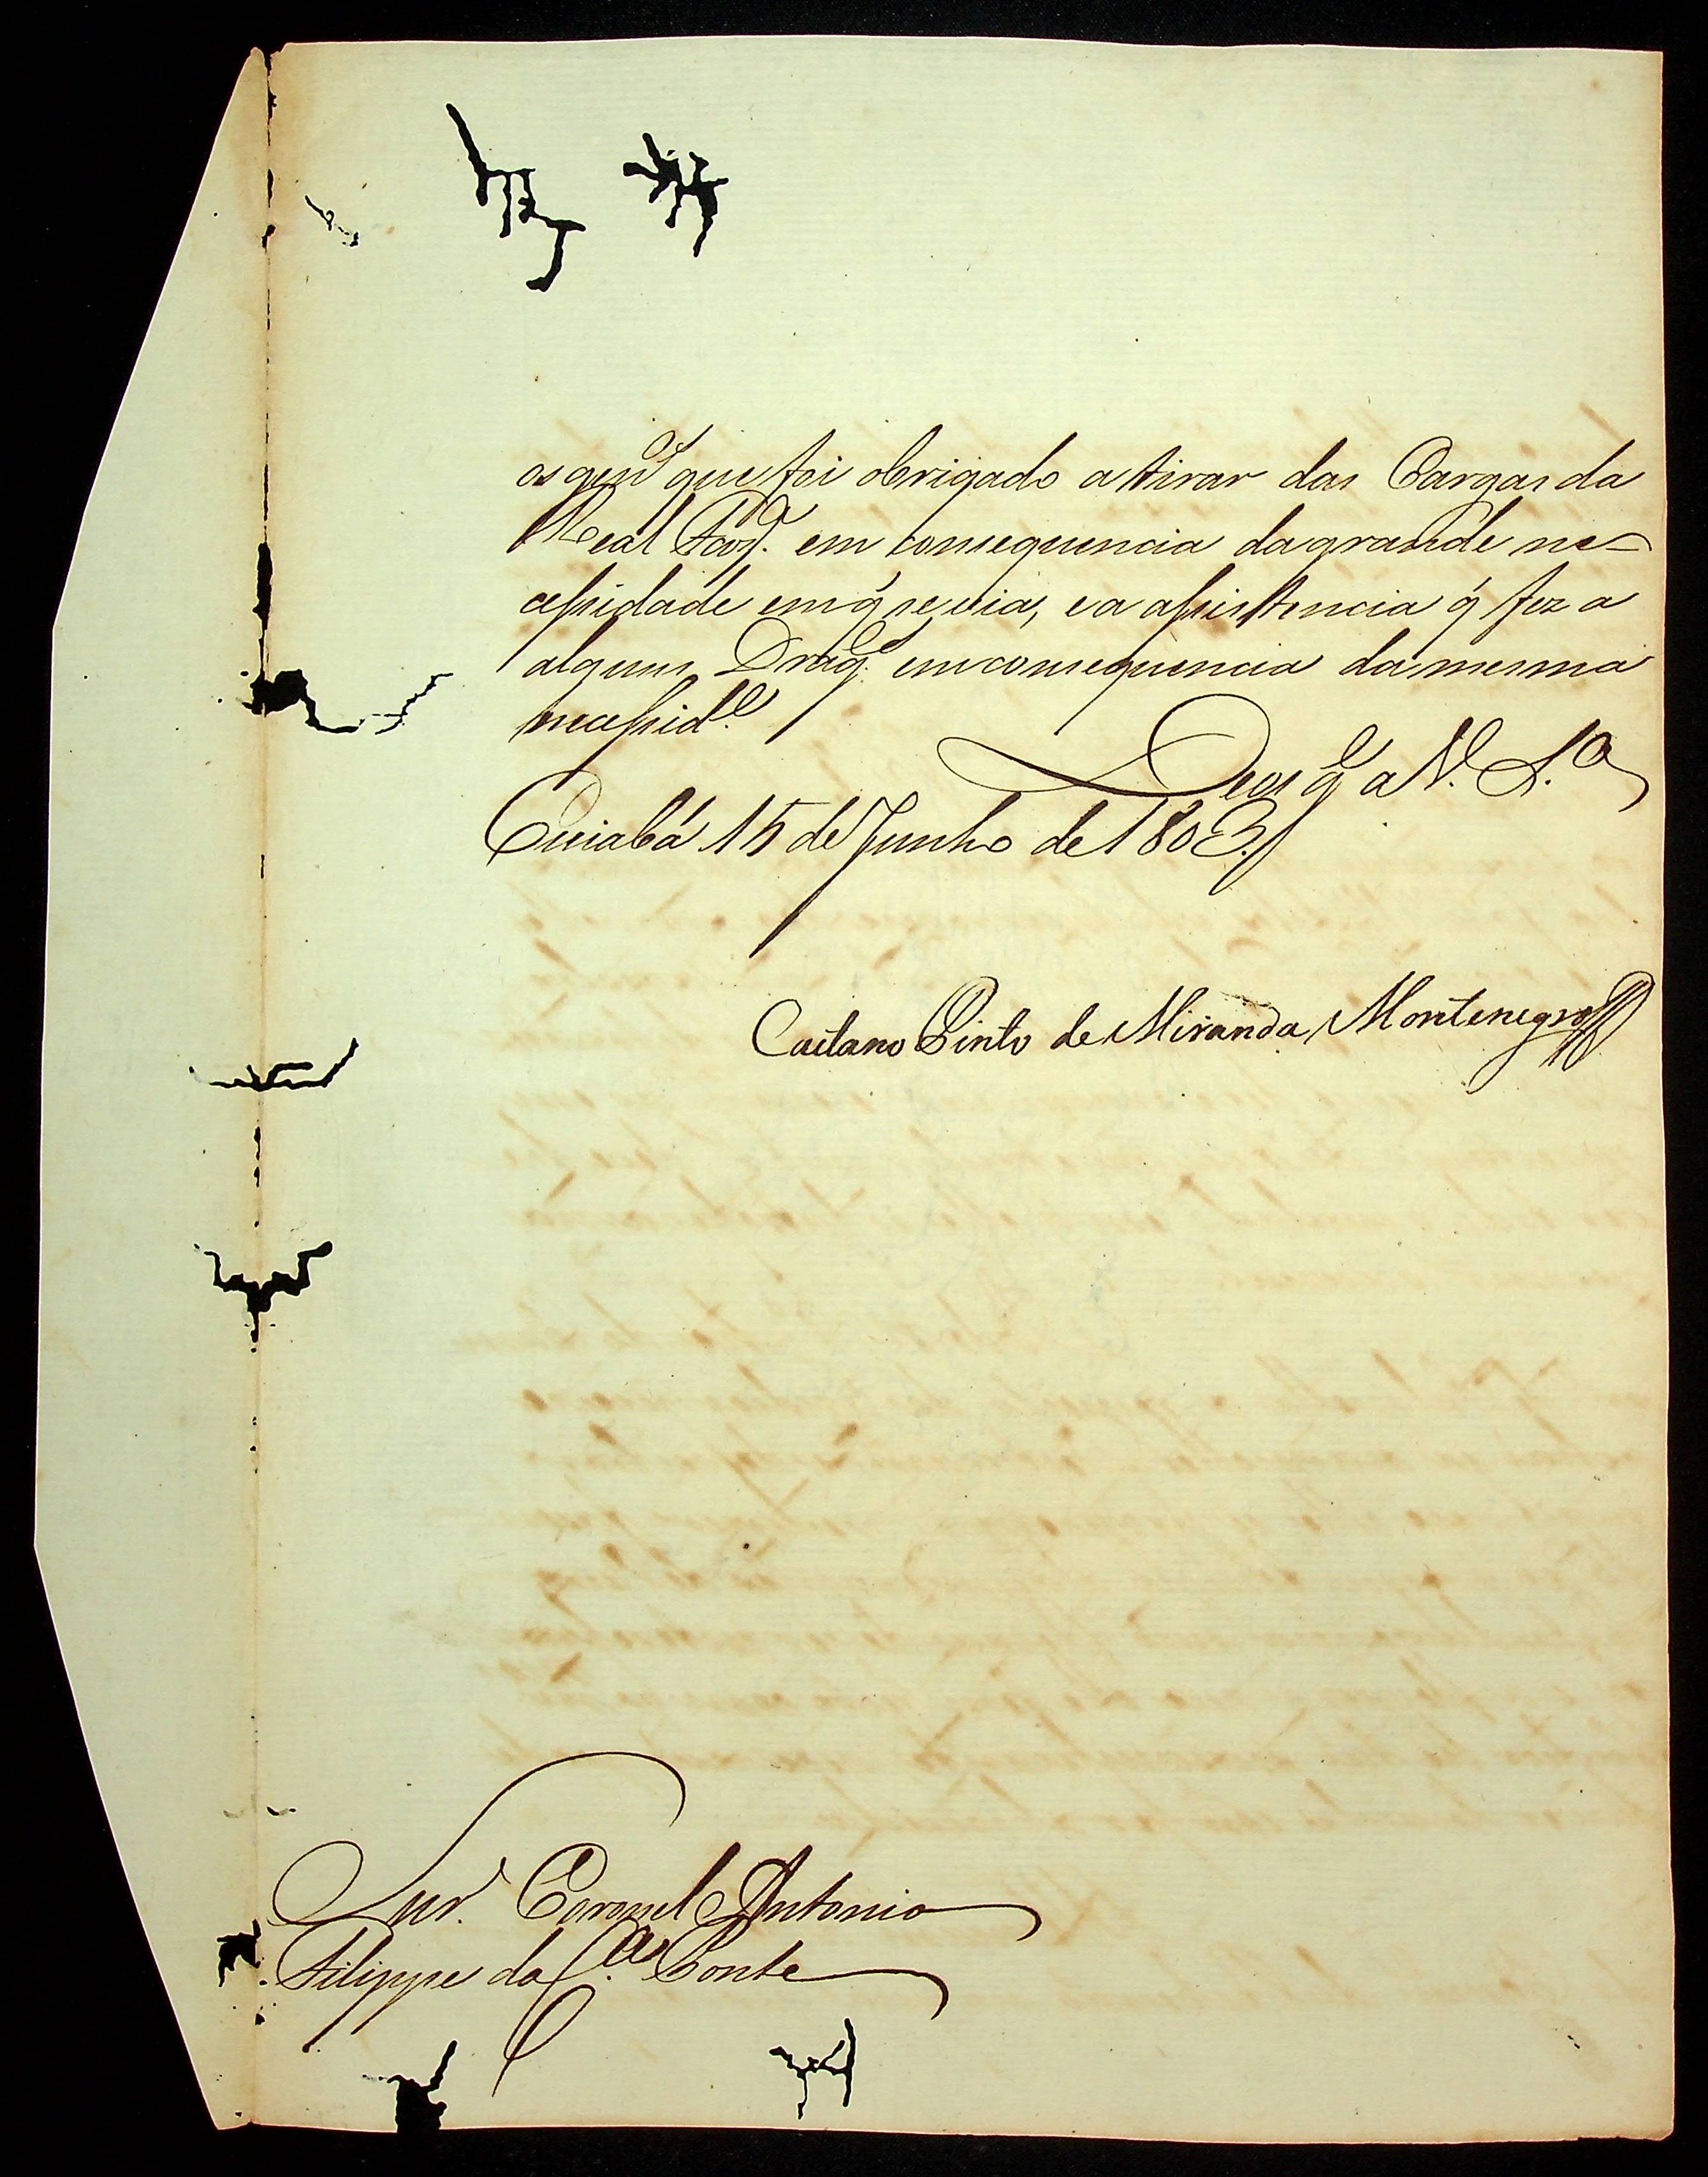 os gen.s que foi obrigado a tirar das Cargas da
Real Faz.da em consequencia da grande ne-
cessidade em q̃ se via, e a assistencia q̃ fez a
alguns Drag.es em consequencia da mesma
necessid.e
Deos g.e a V. S.a
Cuiabá 15 de Junho de 1803.
Caetano Pinto de Miranda Montenegro
Snr. Coronel Antonio
Filippe da C.a Ponte